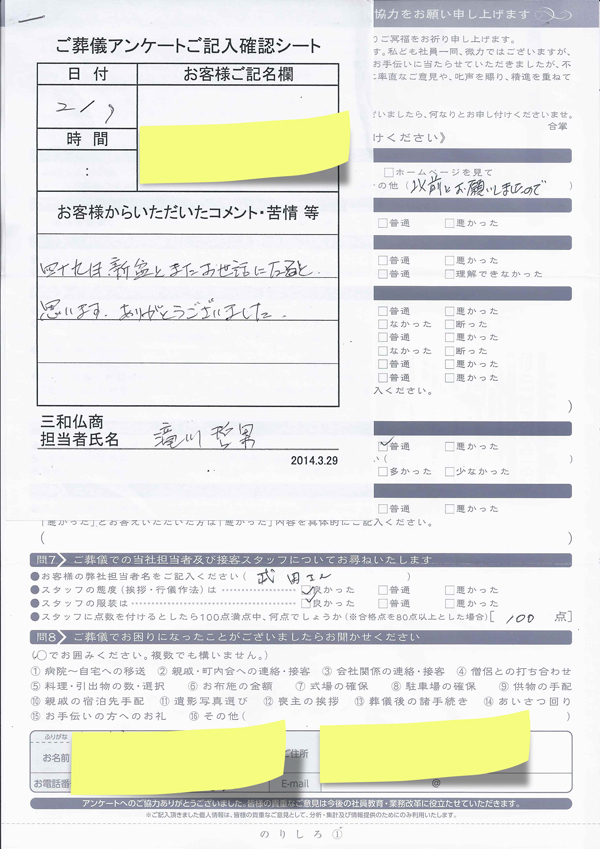 ご葬儀アンケートご記入確認シート
日 付
お客様ご記名欄
2/9
時 間
:
お客様からいただいたコメント・苦情 等
四十九日 新盆とまたお世話になると
思います。ありがとうございました。
三和仏商
担当者氏名 滝川 哲男
2014.3.29
協力をお願い申し上げます
ご冥福をお祈り申し上げます。
す。私ども社員一同、微力ではございますが、
お手伝いに当たらせていただきましたが、不
に率直なご意見や、叱声を賜り、精進を重ねて
ざいましたら、何なりとお申し付けくださいませ。
合掌
けください》
□ホームページを見て
の他（以前にお願いしましたので
□普通 □悪かった
□普通 □悪かった
□普通 □理解できなかった
□普通 □悪かった
□なかった □断った
□普通 □悪かった
□なかった □断った
□普通 □悪かった
□普通 □悪かった
入ください。
)
☑普通 □悪かった
い( )
□多かった □少なかった
□普通 □悪かった
「悪かった」とお答えいただいた方は「悪かった」内容を具体的にご記入ください。
( )
問7 ご葬儀での当社担当者及び接客スタッフについてお尋ねいたします
●お客様の弊社担当者名をご記入ください（ 武田さん ）
●スタッフの態度（挨拶・行儀作法）は ☑良かった □普通 □悪かった
●スタッフの服装は ☑良かった □普通 □悪かった
●スタッフに点数を付けるとしたら100点満点中、何点でしょうか（※合格点を80点以上とした場合）[ 100 点]
問8 ご葬儀でお困りになったことがございましたらお聞かせください
(○でお囲みください。複数でも構いません。)
①病院〜自宅への移送 ②親戚・町内会への連絡・接客 ③会社関係の連絡・接客 ④僧侶との打ち合わせ
⑤料理・引出物の数・選択 ⑥お布施の金額 ⑦式場の確保 ⑧駐車場の確保 ⑨供物の手配
⑩親戚の宿泊先手配 ⑪遺影写真選び ⑫喪主の挨拶 ⑬葬儀後の諸手続き ⑭あいさつ回り
⑮お手伝いの方へのお礼 ⑯その他( )
ふりがな
お名前
ご住所
お電話番
E-mail
@
アンケートへのご協力ありがとうございました。皆様の貴重なご意見は今後の社員教育・業務改革に役立たせていただきます。
※ご記入頂きました個人情報は、皆様の貴重なご意見として、分析・集計及び情報提供のためにのみ利用いたします。
のりしろ①